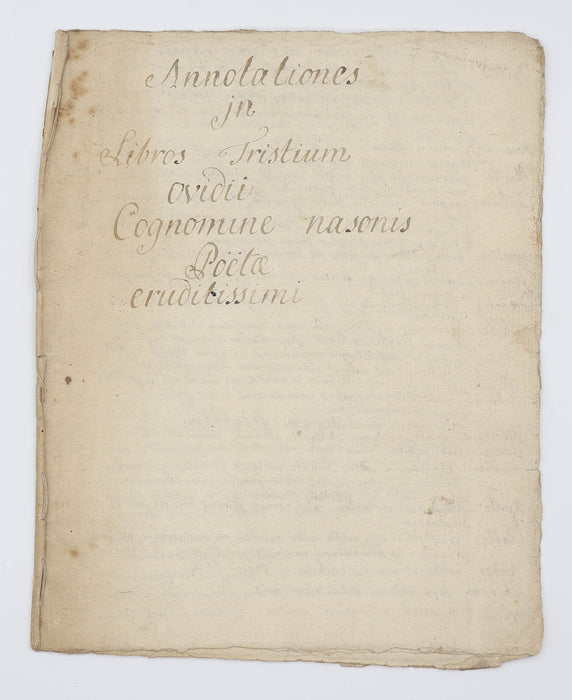 Annotationes
jn
Libros Tristium
ovidii
Cognomine nasonis
Poëtæ
eruditissimi